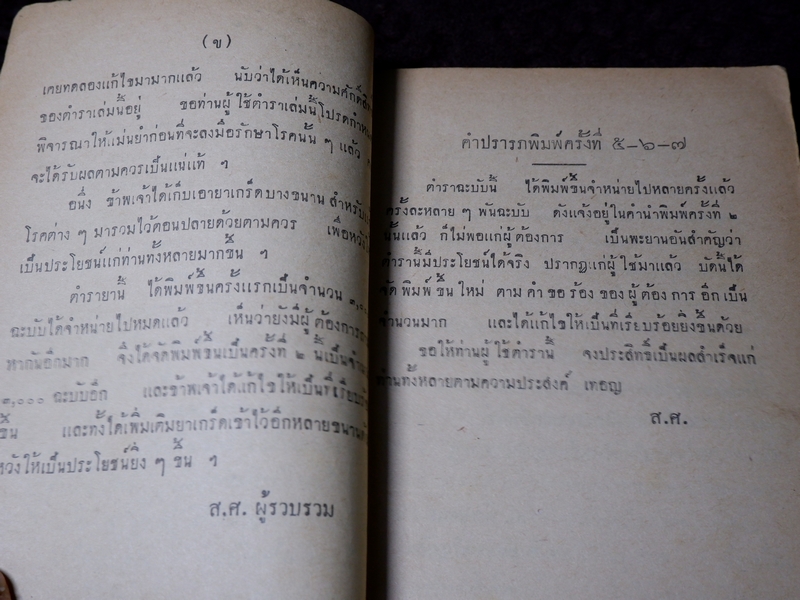 (ข)
เคยทดลองแก้ไขมามากแล้ว นับว่าได้เห็นความศักดิ์สิท
ของตำราเล่มนี้อยู่ ขอท่านผู้ใช้ตำราเล่มนี้โปรดกำหน
พิจารณาให้แม่นยำก่อนที่จะลงมือรักษาโรคนั้น ๆ แล้ว
จะได้รับผลตามควรเป็นแน่แท้ ฯ
อนึ่ง ข้าพเจ้าได้เก็บเอายาเกร็ดบางขนาน สำหรับ
โรคต่าง ๆ มารวมไว้ตอนปลายด้วยตามควร เพื่อหวัง
เป็นประโยชน์แก่ท่านทั้งหลายมากขึ้น ฯ
ตำรายานี้ ได้พิมพ์ขึ้นครั้งแรกเป็นจำนวน
ฉะบับได้จำหน่ายไปหมดแล้ว เห็นว่ายังมีผู้ต้องการ
หากันอีกมาก จึงได้จัดพิมพ์ขึ้นเป็นครั้งที่ ๒ นี้เป็นจำน
,๐๐๐ ฉะบับอีก และข้าพเจ้าได้แก้ไขให้เป็นที่เรียบร้
ขึ้น และทั้งได้เพิ่มเติมยาเกร็ดเข้าไว้อีกหลายขนาน
หวังให้เป็นประโยชน์ยิ่ง ๆ ขึ้น ฯ
ส.ศ. ผู้รวบรวม
คำปรารภพิมพ์ครั้งที่ ๕-๖-๗
ตำราฉะบับนี้ ได้พิมพ์ขึ้นจำหน่ายไปหลายครั้งแล้ว
ครั้งละหลาย ๆ พันฉะบับ ดังแจ้งอยู่ในคำนำพิมพ์ครั้งที่ ๒
นั้นแล้ว ก็ไม่พอแก่ผู้ต้องการ เป็นพะยานอันสำคัญว่า
ตำรานี้มีประโยชน์ได้จริง ปรากฏแก่ผู้ใช้มาแล้ว บัดนี้ได้
จัดพิมพ์ขึ้นใหม่ ตามคำขอร้องของผู้ต้องการอีกเป็น
จำนวนมาก และได้แก้ไขให้เป็นที่เรียบร้อยยิ่งขึ้นด้วย
ขอให้ท่านผู้ใช้ตำรานี้ จงประสิทธิ์เป็นผลสำเร็จแก่
ท่านทั้งหลายตามความประสงค์ เทอญ
ส.ศ.